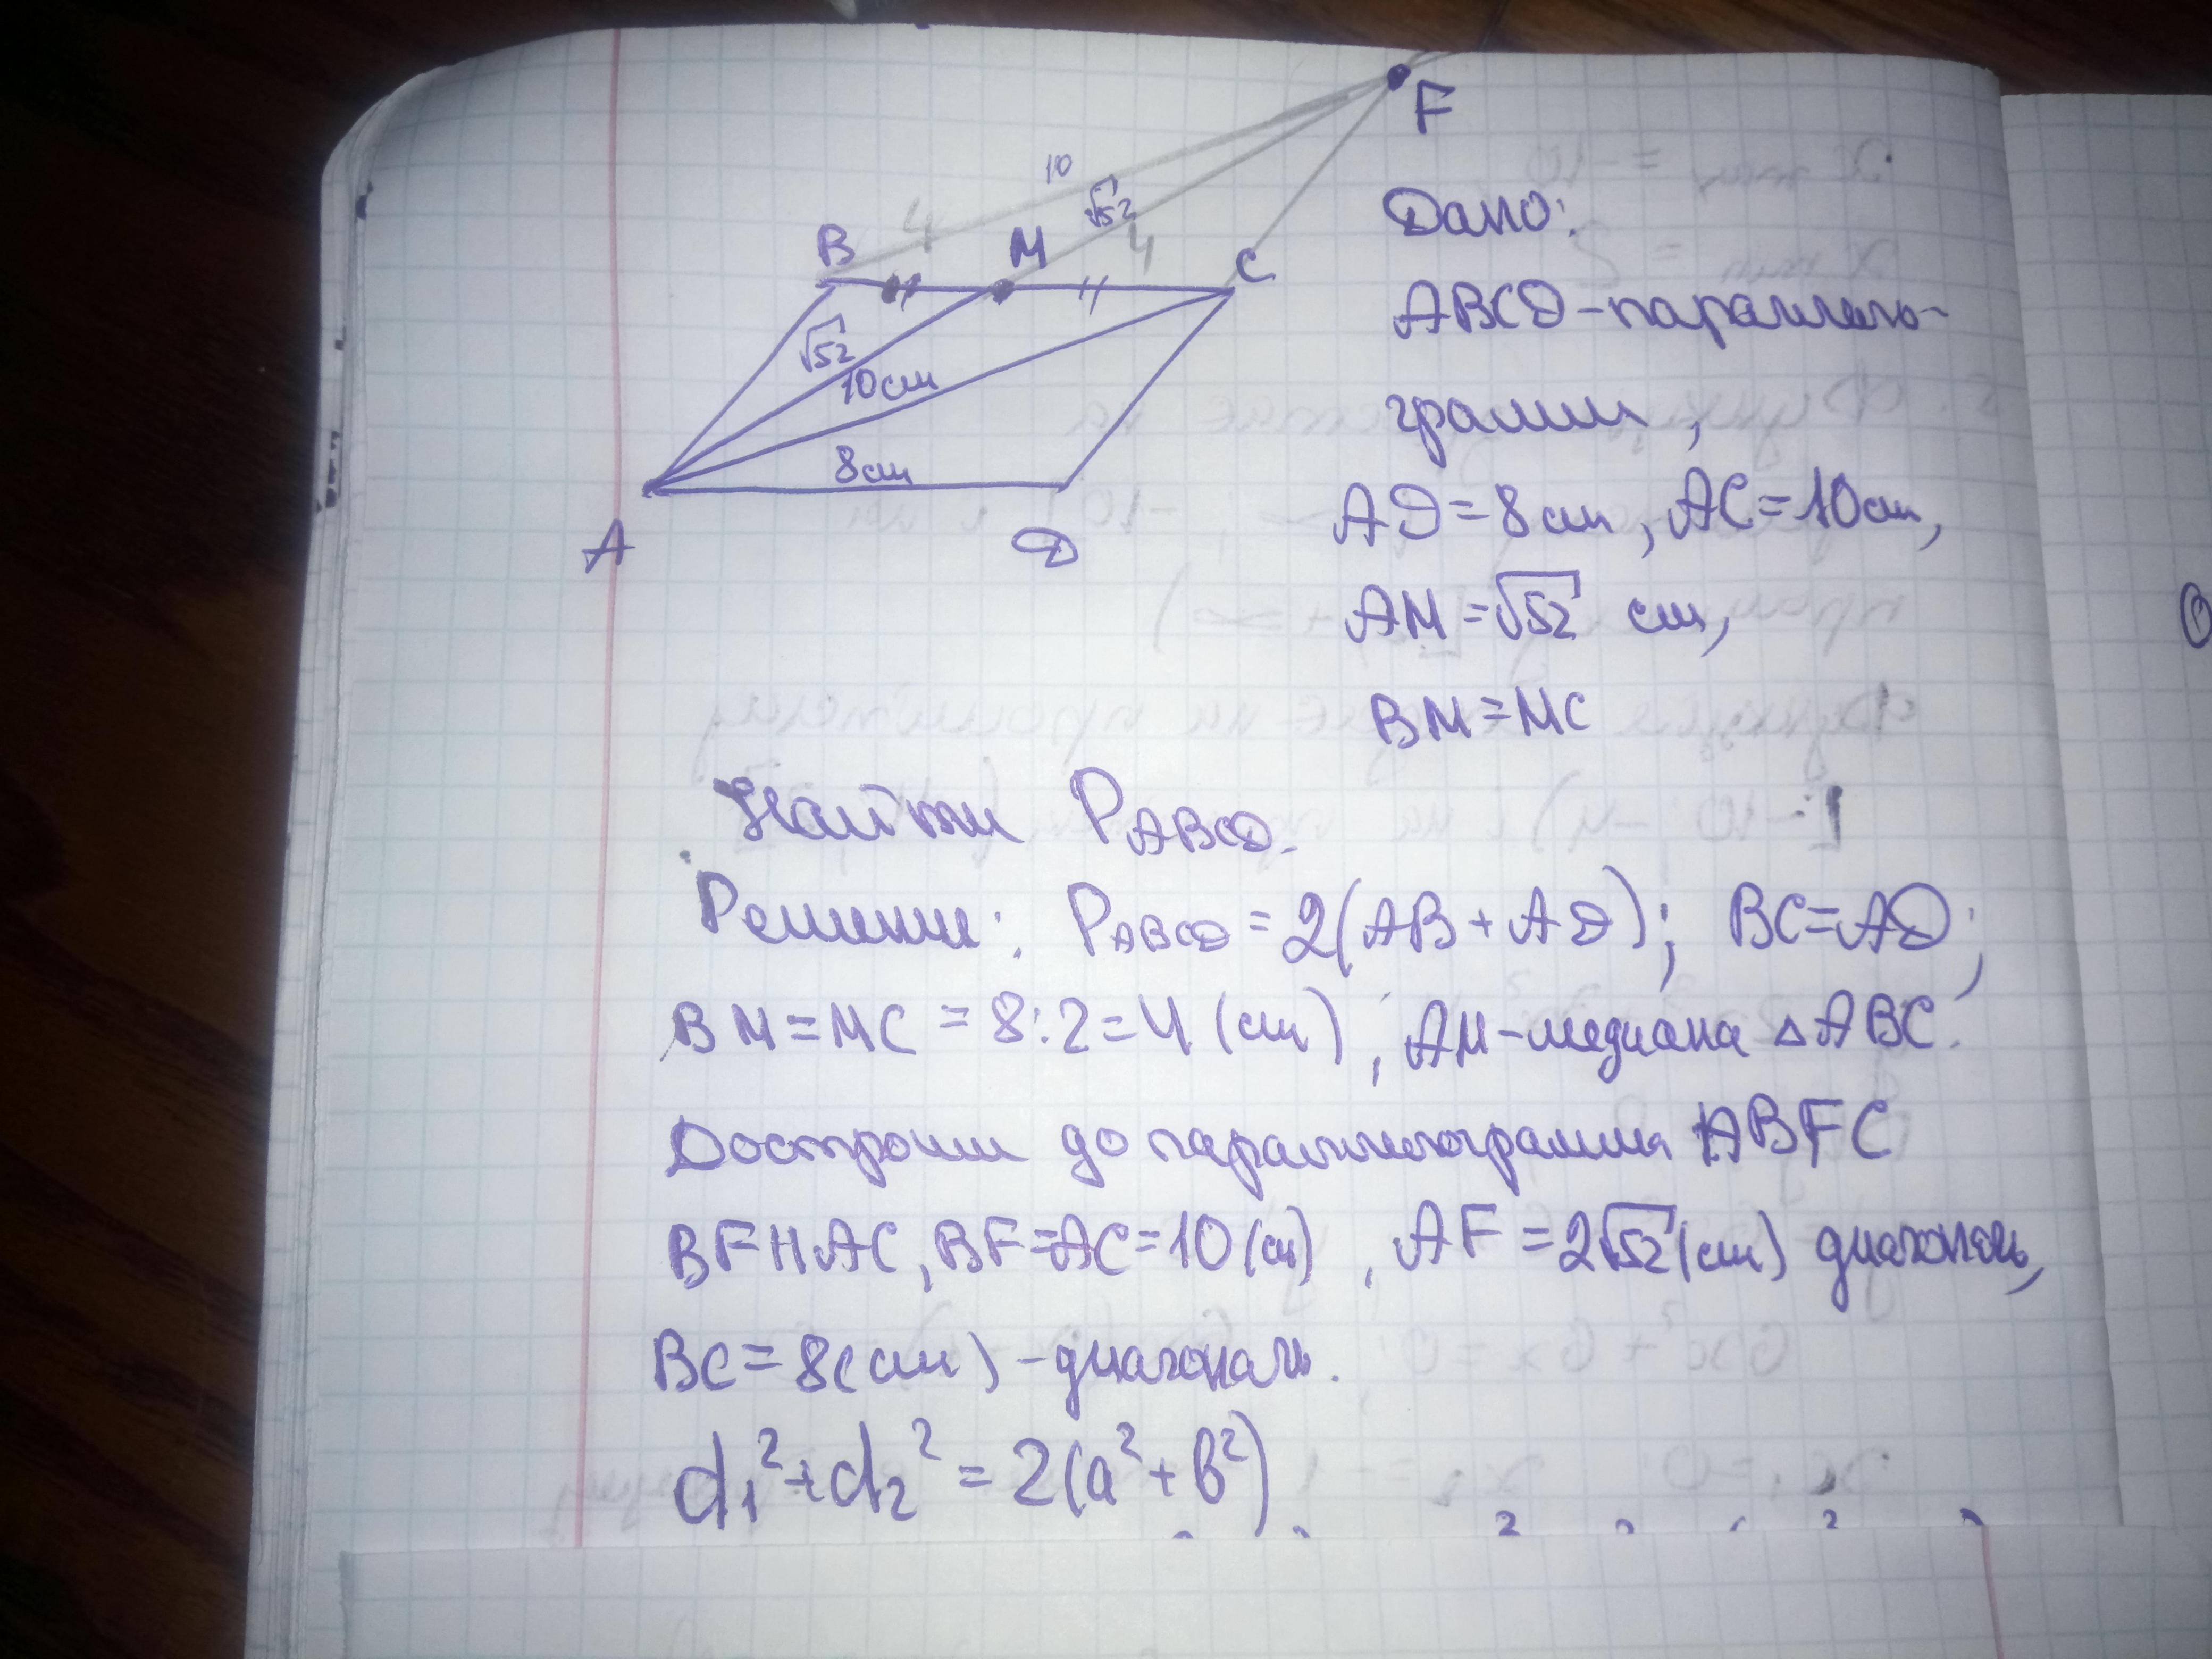 F
10
√52
4
4
B
M
C
√52
10 см
8 см
A
D
Дано:
ABCD - параллело-
грамм,
AD = 8 см, AC = 10 см,
AM = √52 см,
BM = MC
Найти P ABCD.
Решение: P ABCD = 2(AB + AD); BC = AD;
BM = MC = 8:2 = 4 (см), AM - медиана △ABC.
Достроим до параллелограмма ABFC
BF II AC, BF = AC = 10 (см), AF = 2√52 (см) диагональ,
BC = 8 (см) - диагональ.
d₁² + d₂² = 2(a² + b²)